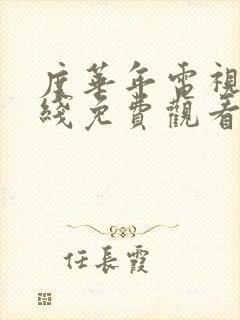 度華年電視
綫免費觀看
任長霞